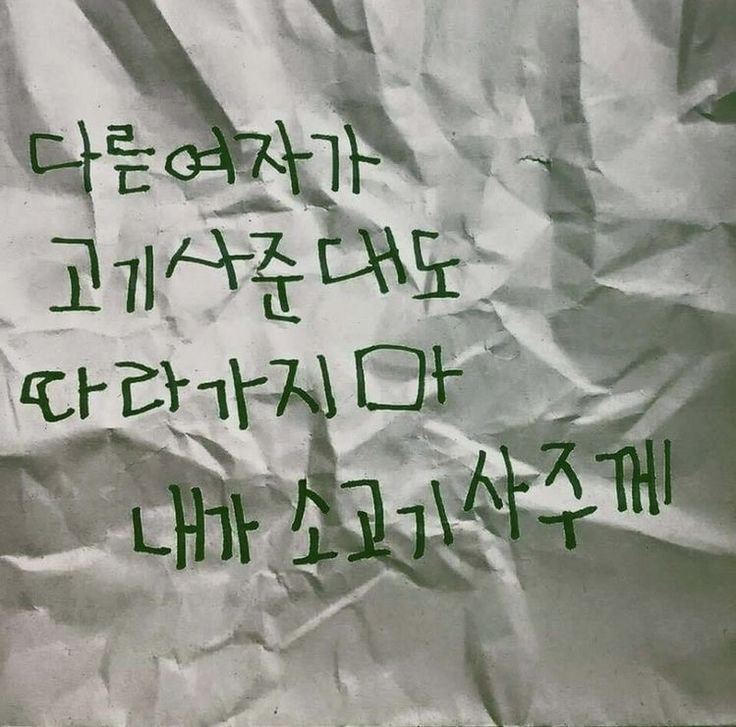 다른여자가
고기사준대도
따라가지마
내가 소고기사주께